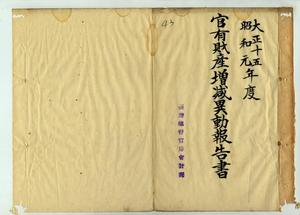 大正十五
昭和元年度
官有財産増減異動報告書
43